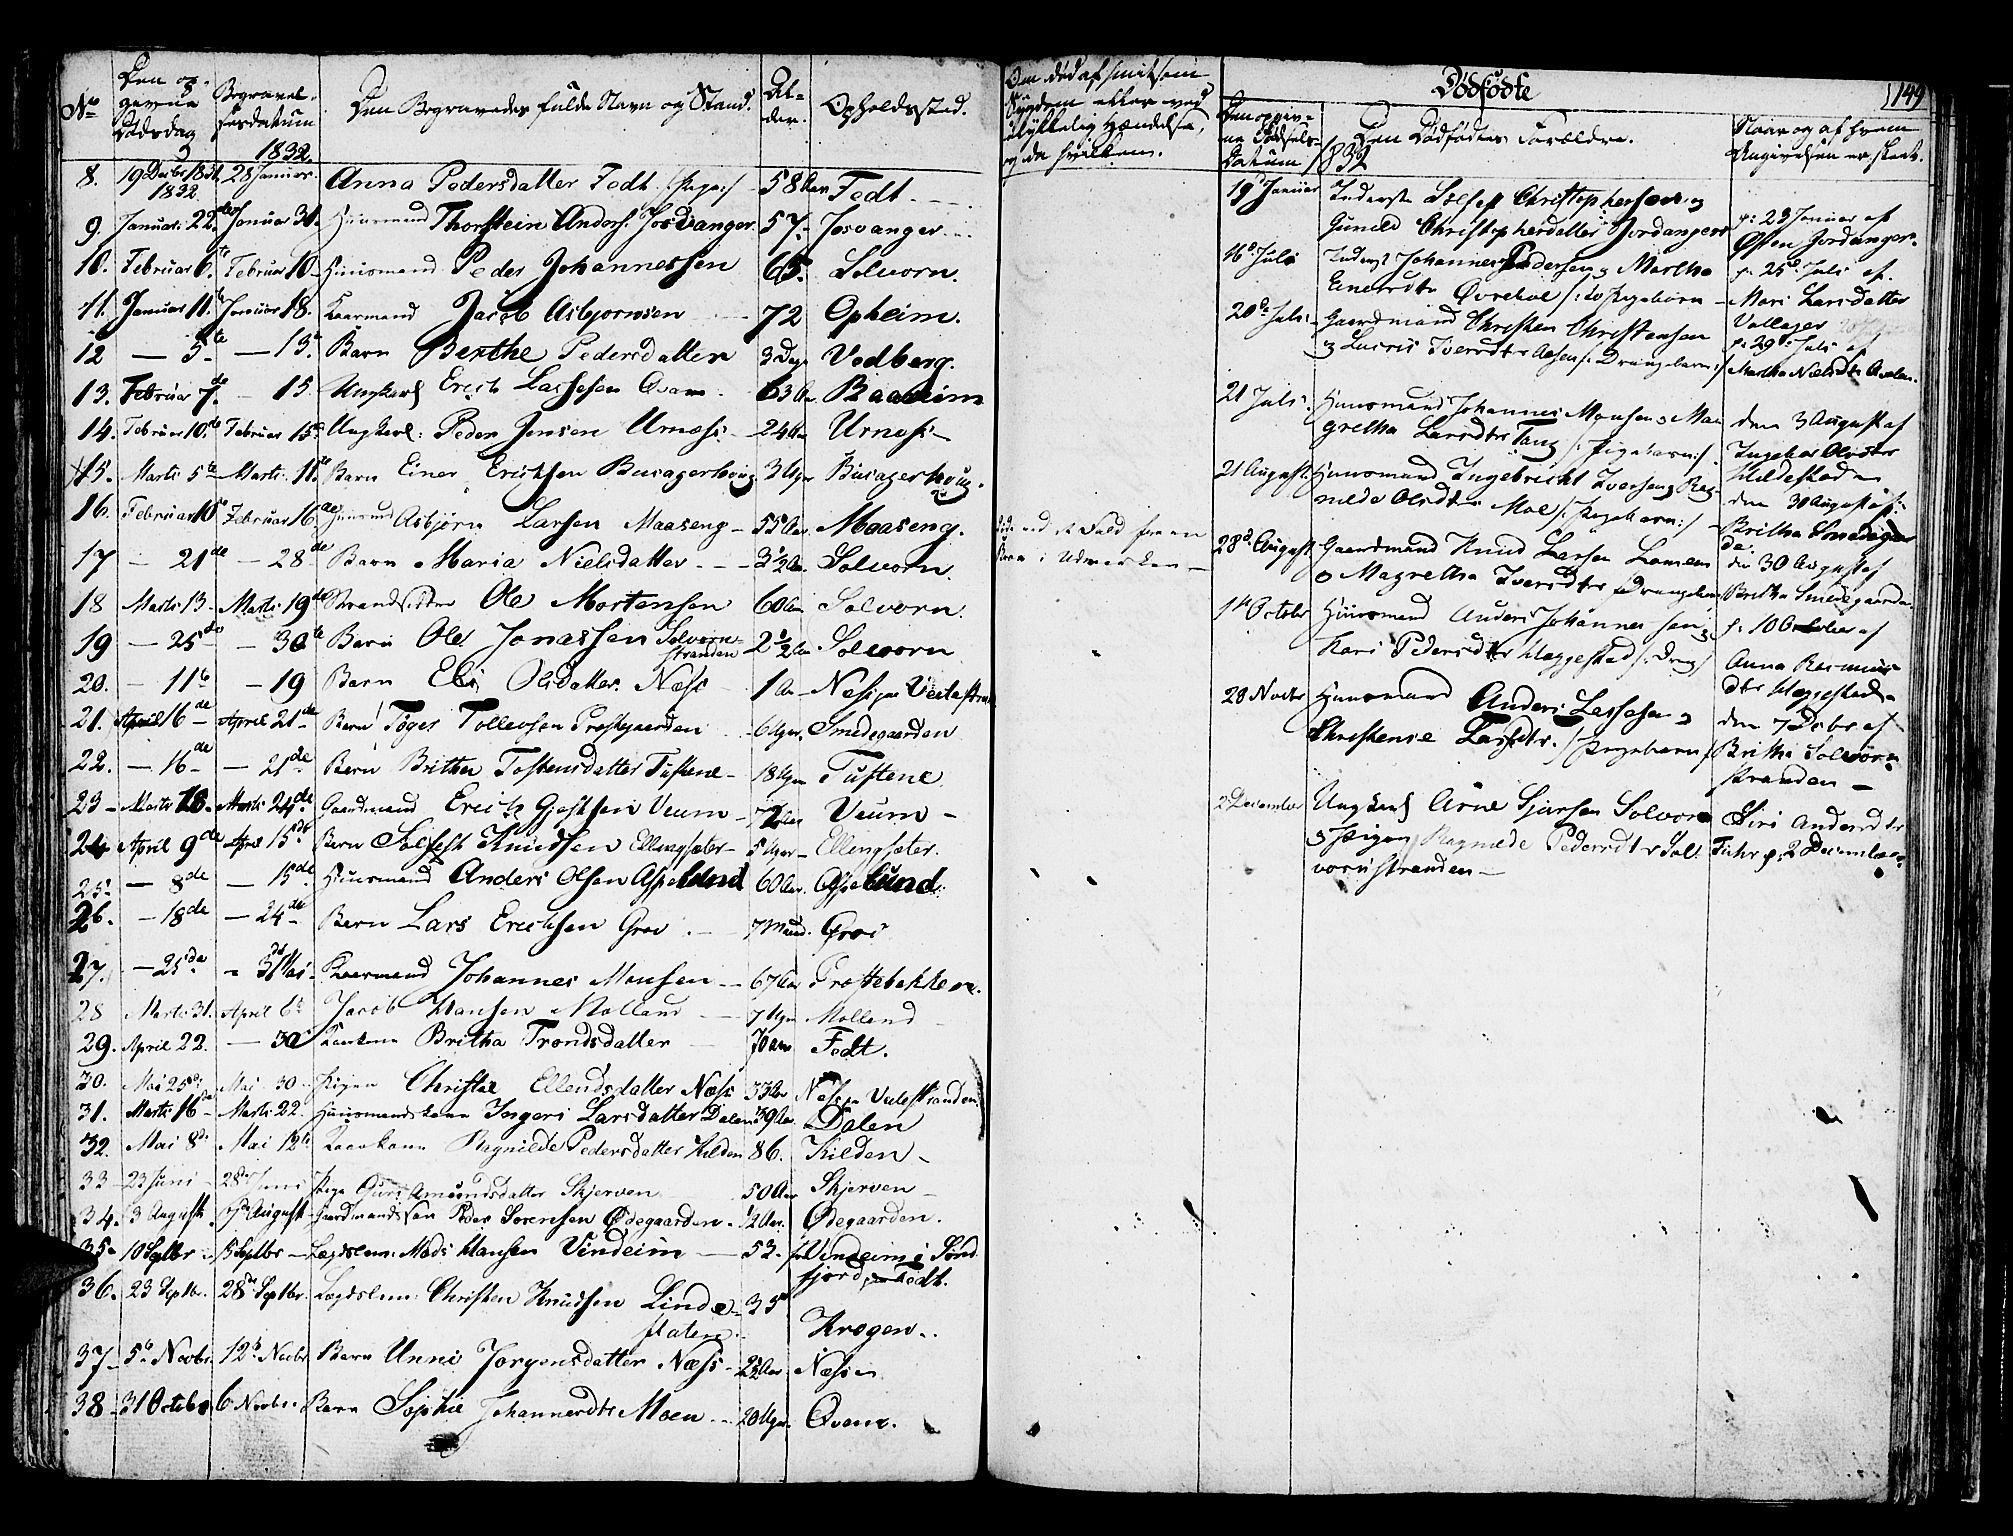 No
Den op-
givne
Dødsdag
Begravel-
sesdatum
1832.
Den Begravedes fulde Navn og Stand.
Al-
der.
Opholdssted.
8. 19 Decbr 1831 28 Januar. Anna Pedersdatter Fedt /:Pige:/ 58 Aar Fedt
1832
9. Januar: 22de Januar 31. Huusmand Thorstein Anders. Josvanger. 57. Josvanger
10. Februar 6te Februar 10 Huusmand Peder Johannessen 65. Solvorn.
11. Januar 11te Januar 18. Kaarmand Jacob Asbjørnsen 72 Opheim.
12 — 5te — 13. Barn Berthe Pedersdatter 3 Dage Vedberg.
13. Februar 7de — 15. Ungkarl Erich Lassesen Qvam 63 Aar Baaheim
14. Februar 10de Februar 15. Ungkarl: Peder Jensen Urnæss 24 Aar Urnæss
15. Marts 5te Marts: 11te Barn Einer Erichsen Busagerhoug 3 Uger Busagerhoug.
16. Februar 10de Februar 16de Huusmand Asbjørn Larsen Maaseng 55 Aar Maaseng.
17 — 21de — 28de Barn Maria Nielsdatter 3 1/2 Aar Solvorn.
18 Marts: 13 Marts: 19de Strandsidder Ole Mortensen 60 Aar Solvorn.
19 — 25de — 30te Barn Ole Jonassen Solvorn- 2 1/2 Aar Solvorn
stranden
20. — 11te — 19 Barn Eli Olsdatter Næss 1 Aar Næss
21. April 16de April 21de Barn Tøger Tollevsen Prestegaarden 6 Uger. Smedegaarden
22. — 16de — 21de Barn Britha Tostensdatter Tustene 18 Uger Tustene
23 Marts 18. Marts 24de Gaardmand Erich Gjestsen Veum 72 Aar Veum
24 April 9de April 15de Barn Solfest Knudsen Ellingsæter 5 Uger Ellingsæter.
25. — 8de — 15de Huusmand Anders Olsen Aspelund 60 Aar. Aspelund.
26. — 18de — 24de Barn Lars Erichsen Grov 7 Maand. Grov
27. — 25de 31 Mai Kaarmand Johannes Monsen 67 Aar Prestebakken.
28 Marts 31. April 6te Jacob Hansen Molland 7 Uger Molland
29. April 22. — 30 Kaarkone Britha Trondsdatter 70 Aar Fedt.
30. Mai 25de Mai 30 Pigen Christie Ellendsdatter Næss 33 Aar Næss
31. Marts 16de Marts 22. Huusmandskone Ingeri Larsdatter Dalen 39 Aar. Dalen
32. Mai 8de Mai 12te Kaarkone Ragnilde Pedersdatter Kilden 86. Kilden
33 23 Juni 28de Juni Pige Guri Amundsdatter Skjerven 50 Aar Skjerven
34. 3 August. 7de August Gaardmandssøn Peder Sørensen Ødegaarden. 1/2 Aar. Ødegaarden.
35 10 Septbr 15 Septbr Lægdslem: Mads Hansen Vindeim 53. fra Vindeim i Sønd-
fjord Fedt.
36. 23 Septbr. 28de Septbr. Lægdslem: Christen Knudsen Linde- 35
flaten. Krogen.
37 5te Novbr. 12te Novbr Barn Unni Jørgensdatter Næss Næss
38 31 Octobr 6 Novbr. Barn Sophie Johannesdtr Moen 20 Uger. Qvam.
Om død af smitsom
Sygdom eller ved
ulykkelig Hændelse,
og da hvilken.
Død ved et Fald fra en
i Udmarken
Dødfødte
149
Den opgiv-
ne Fødsels-
Datum 1832
Den Dødfødtes Forældre.
Naar og af hvem
Angivelsen er skeet.
19 Januar Inderst Solfest Christophersen og
Gunild Christophersdatter Jordanger
p: 23 Januar af
Østen Jordanger.
16de Juli Inderst Johannes Pedersen og Martha
Einersdtr Øvrehoe /: Pigebørn
p: 25de Juli af
Mari Larsdatter
Vollager
20de Juli Gaardmand Christen Christensen
og Lucris Iversdtr /: Drengebarn:/
p: 29de Juli af
Martha Nielsdtr
21 Juli. Huusmand Johannes Monsen og Mar
gretha Larsdtr Tang /: Pigebarn:/
den 3 August af
Ingebor Olsdtr
Hildestad
21 August. Huusmand Ingebricht Iversen og Rag-
nilde Olsdtr Moe /: Pigebarn:/
den 30 August af
Britha Smedegaar
de.
28de August Gaardmand Knud Larsen
og Magretha Iversdtr /: Drengebarn
den 30 August af
Britha Smedegaarden
1ste October Huusmand Anders Johannessen og
Kari Pedersdtr Hæggestad /: Dreng/
p: 10 October af
Anna Rasmus-
dtr Hæggestad
28 Novbr Huusmand Anders Lassesen og
Christense Larsdtr. /: Pigebarn:/
den 7 Decbr af
Britha Solvorn-
stranden
2 December Ungkarl Arne Sjursen Solvorn
og Pigen Ragnilde Pedersdtr Sol-
vornstranden
Siri Andersdtr
Fuhr p: 2 December